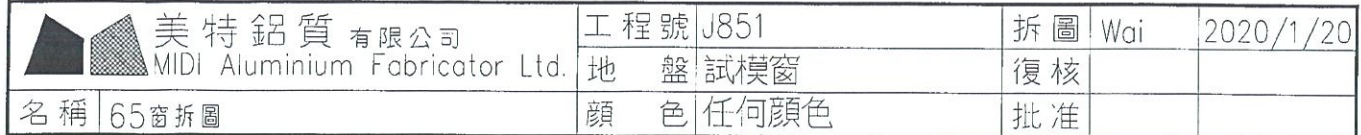 美特鋁質有限公司
MIDI Aluminium Fabricator Ltd.
工程號 J851 拆圖 Wai 2020/1/20
地盤 試模窗 復核
名稱 65窗拆圖 顏色 任何顏色 批准